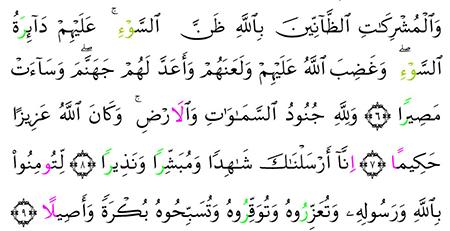 وَالْمُشْرِكَٰتِ الظَّآنِّينَ بِاللَّهِ ظَنَّ السَّوْءِ ۚ عَلَيْهِمْ دَآئِرَةُ
السَّوْءِ ۖ وَغَضِبَ اللَّهُ عَلَيْهِمْ وَلَعَنَهُمْ وَأَعَدَّ لَهُمْ جَهَنَّمَ ۖ وَسَآءَتْ
مَصِيرًا ﴿٦﴾ وَلِلَّهِ جُنُودُ السَّمَٰوَٰتِ وَالَارْضِ ۚ وَكَانَ اللَّهُ عَزِيزًا
حَكِيمًا ﴿٧﴾ اِنَّآ أَرْسَلْنَٰكَ شَٰهِدًا وَمُبَشِّرًا وَنَذِيرًا ﴿٨﴾ لِّتُومِنُوا
بِاللَّهِ وَرَسُولِهِۦ وَتُعَزِّرُوهُ وَتُوَقِّرُوهُ وَتُسَبِّحُوهُ بُكْرَةً وَأَصِيلًا ﴿٩﴾